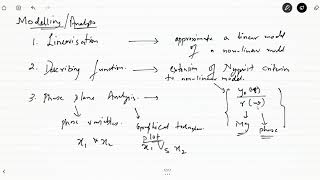 Modelling/Analysis
1. Linearisation → approximate a linear model of a nonlinear model
2. Describing function. → extension of Nyquist criterion to nonlinear model.
3. Phase plane Analysis.
phase variables. Graphical technique
x1 & x2 plot x1 vs x2
Mg phase